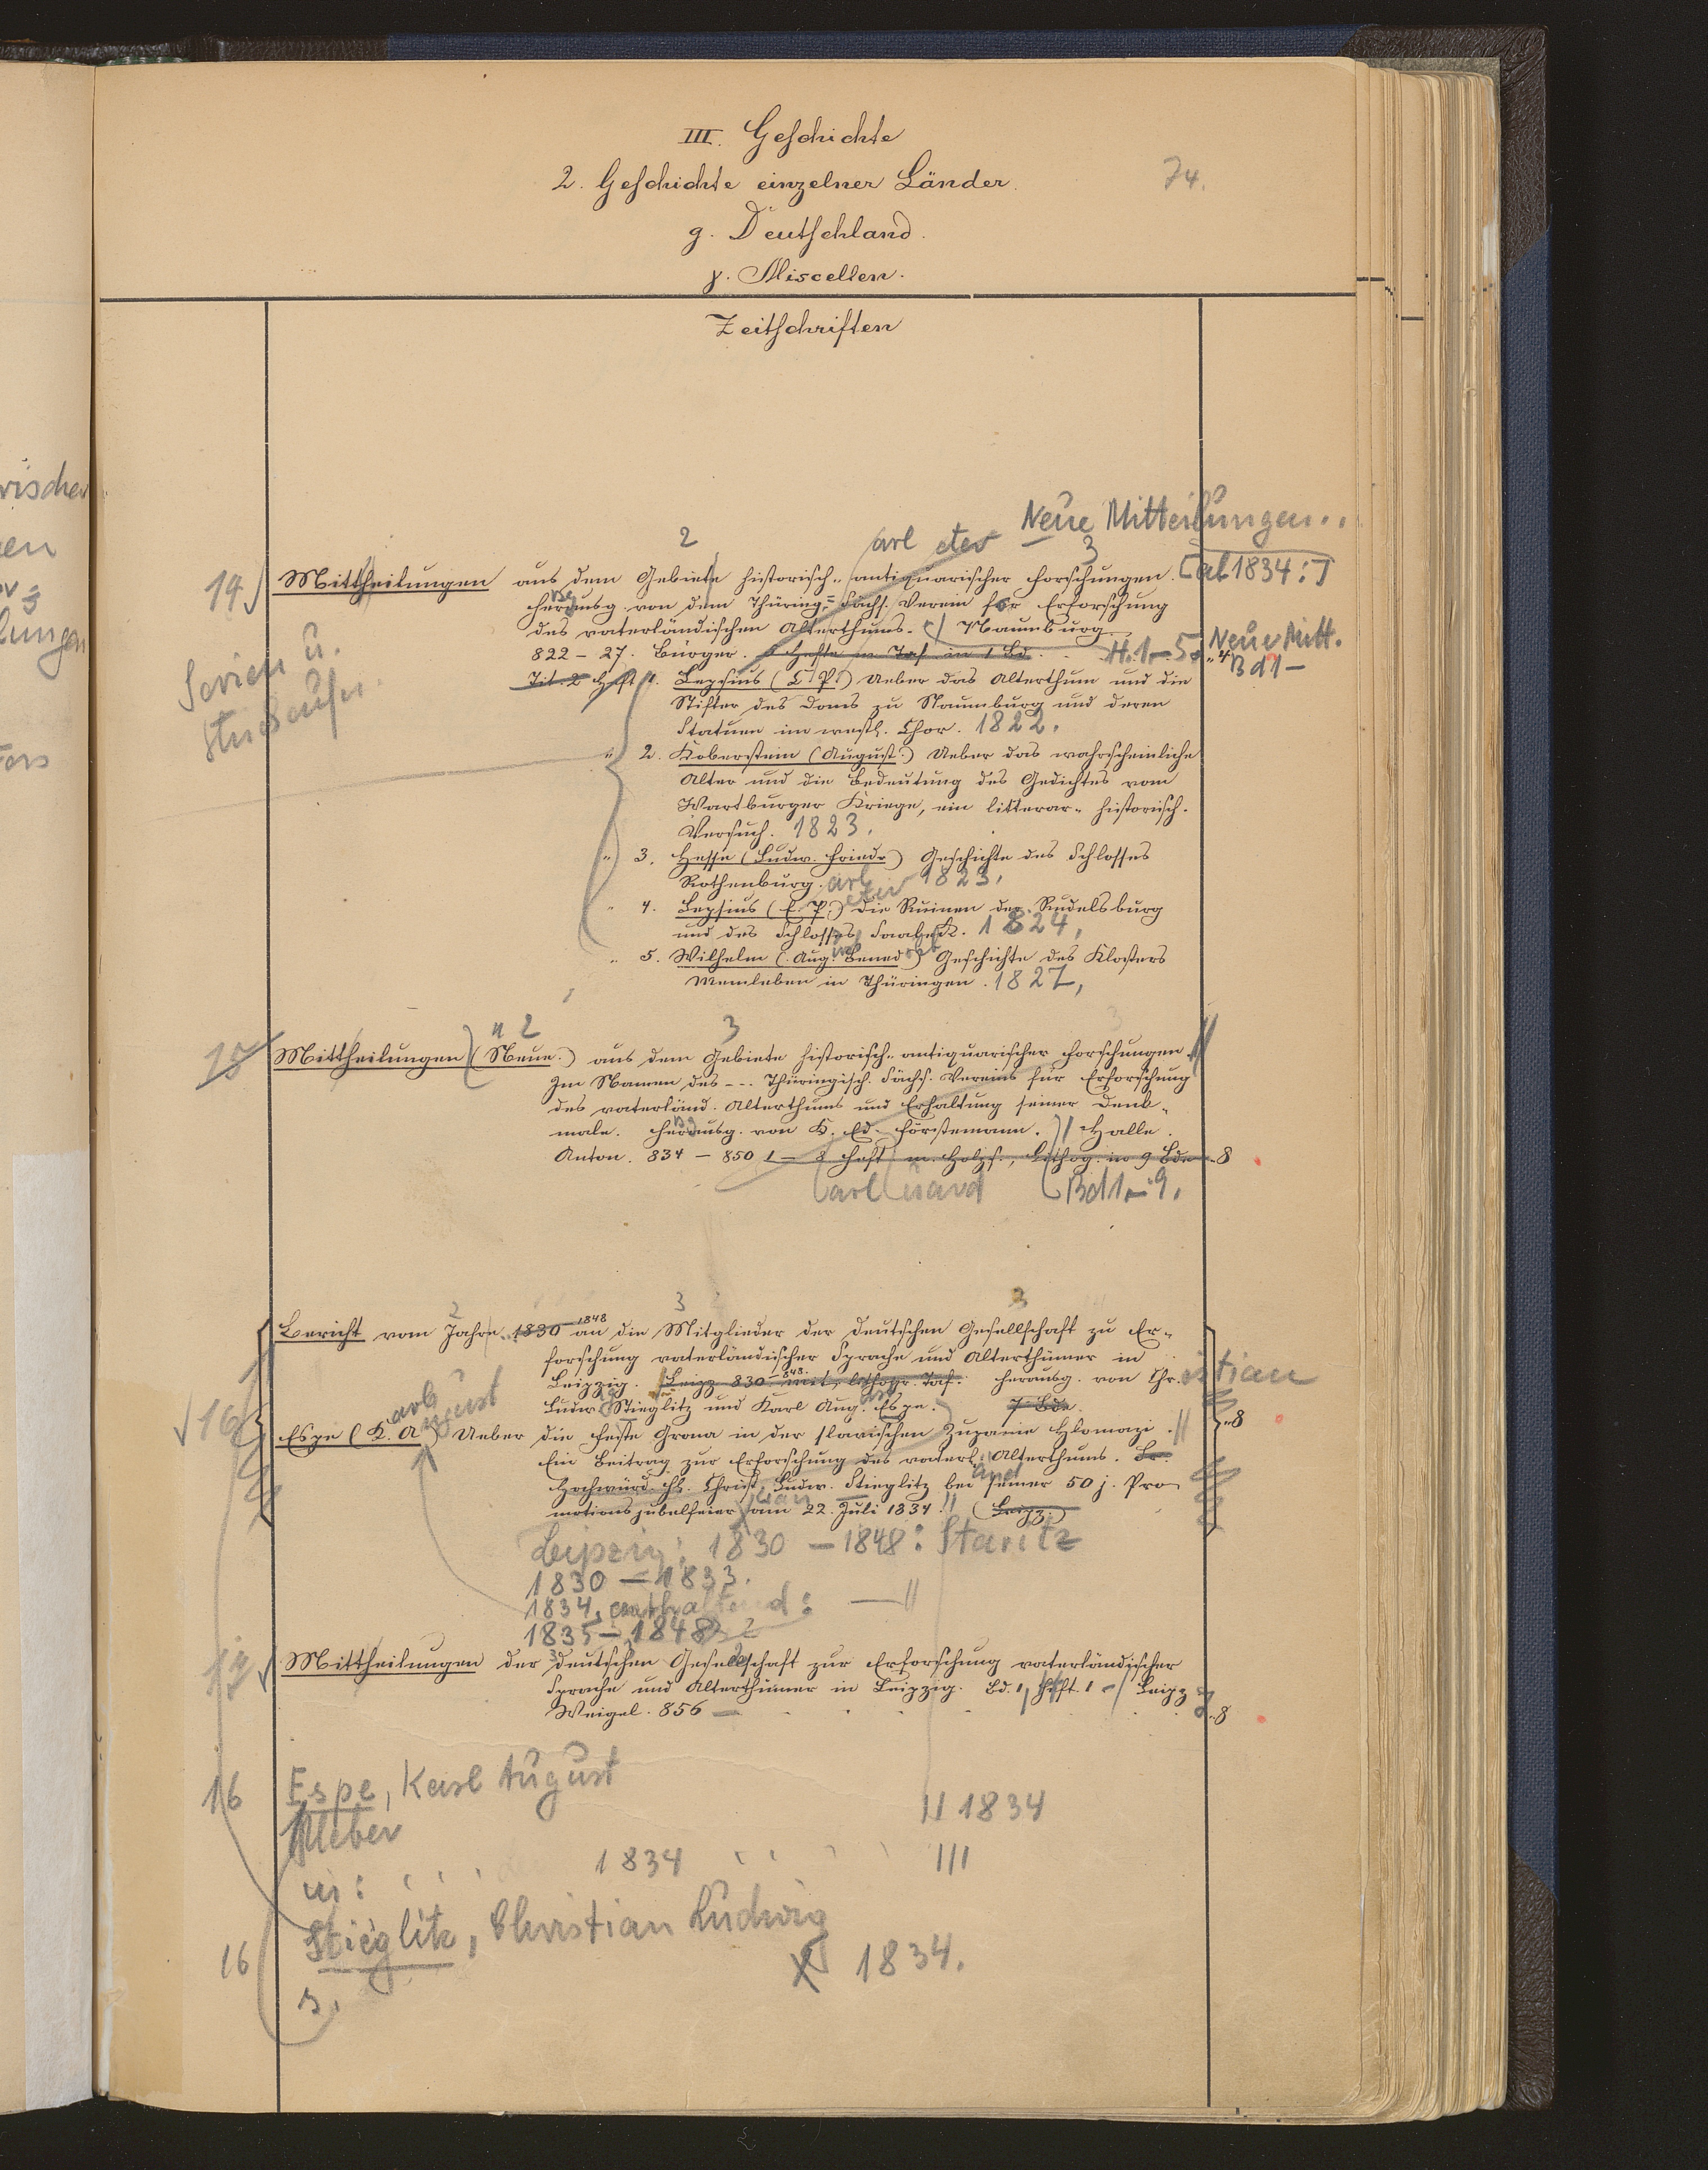 III. Geschichte
2. Geschichte einzelner Länder.
74.
g. Deutschland.
γ. Miscellen.
Zeitschriften
Neue Mitteilungen..
2
3
[ab 1834:]
14
Mittheilungen aus dem Gebiete historisch-antiquarischer Forschungen.
herausg. von dem Thüring.-Sächs. Verein für Erforschung
des vaterländischen Alterthums. Naumburg
822 – 27. Bürger. 5 Hefte m. Taf. in 1 Bd. H. 1–5. "4
Neue Mitt.
Bd 1 –
Serien u.
Stücktitel.
Tit. 2 Heft 1. Lepsius (C. P.) Ueber das Alterthum und die
Stifter des Doms zu Naumburg und deren
Statuen im westl. Chor. 1822.
" 2. Koberstein (August.) Ueber das wahrscheinliche
Alter und die Bedeutung des Gedichtes vom
Wartburger Kriege, ein litterar-historisch.
Versuch. 1823.
" 3. Hesse (Ludw. Friedr.) Geschichte des Schlosses
Rothenburg. 1823.
" 4. Lepsius (C. P.) Die Ruinen der Rudelsburg
und des Schlosses Saaleck. 1824.
" 5. Wilhelm (Aug. Bened.) Geschichte des Klosters
Memleben in Thüringen. 1827.
2
3
15
Mittheilungen (Neue.) aus dem Gebiete historisch-antiquarischer Forschungen.
Im Namen des --- Thüringisch. Sächs. Vereins für Erforschung
des vaterländ. Alterthums und Erhaltung seiner Denk-
male. herausg. von K. Ed. Förstemann. Halle.
Anton. 834 – 850 1 – 8 Heft m. Holzs., Lithog. in 9 Bde "8
arl uard Bd 1–9.
2 3 3
Bericht vom Jahre 1830 – 1848 an die Mitglieder der Deutschen Gesellschaft zu Er-
forschung vaterländischer Sprache und Alterthümer in
Leipzig. Leipz. 830 – 848. mit lithogr. Taf. herausg. von Chr. istian
Ludw. Stieglitz und Karl Aug. Espe. 7 Bde.
16
arl ugust
Espe (K. A.) Ueber die Feste Grona in der slavischen Zupanie Chomazi. "8
Ein Beitrag zur Erforschung des vaterl. Alterthums.
Hochwürd. H. Christ. Ludw. Stieglitz bei seiner 50 j. Pro-
motionsjubelfeier am 22. Juli 1834. (Leipz.)
Leipzig: 1830 – 1848: Staritz
1830 – 1833.
1834, enthaltend: — //
1835 – 1848
17
Mittheilungen der deutschen Gesellschaft zur Erforschung vaterländischer
Sprache und Alterthümer in Leipzig. Bd. 1, Heft. 1 – Leipz
Weigel. 856 — "8
16
Espe, Karl August
Ueber // 1834
in: . . . 1834 . . . ///
16
Stieglitz, Christian Ludwig
1834.
s.